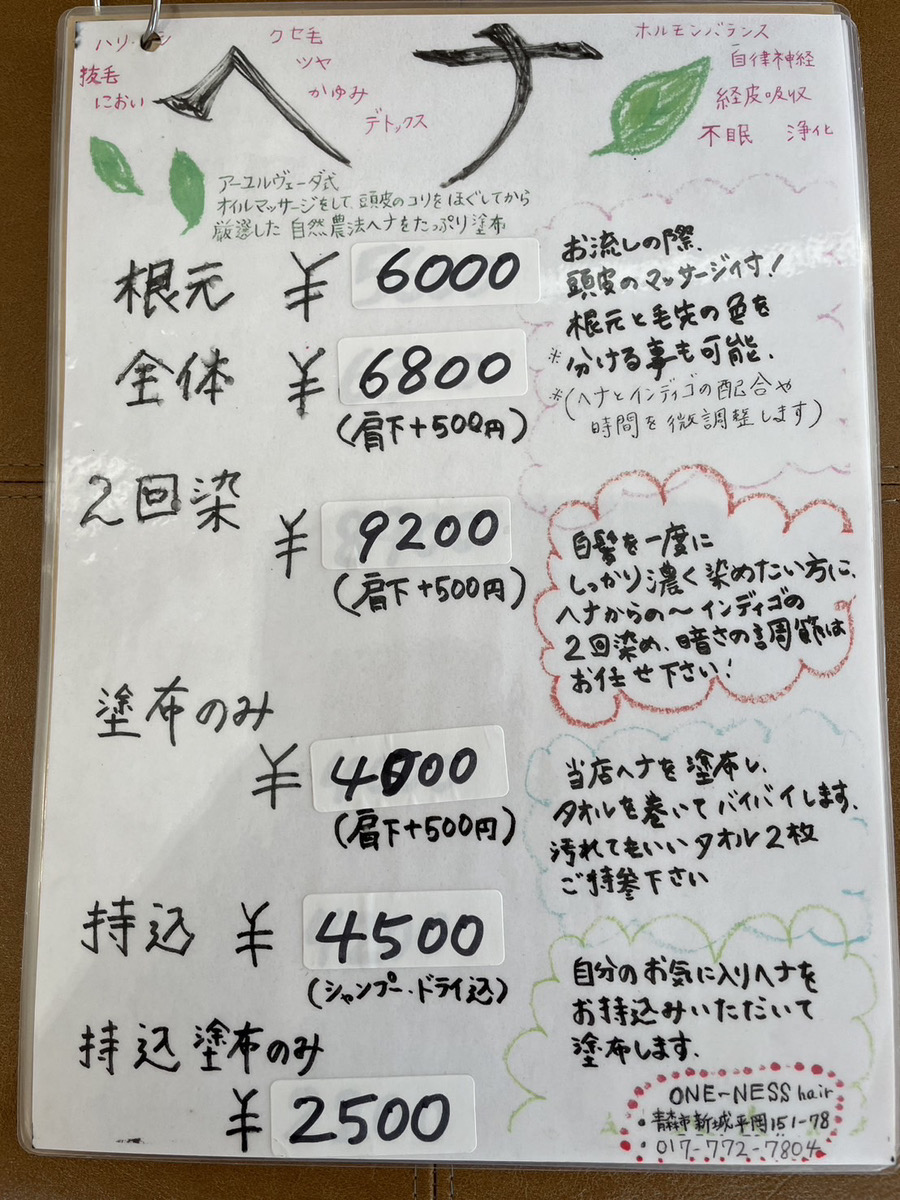 ヘナ
ハリ・コシ
抜毛
におい
クセ毛
ツヤ
かゆみ
デトックス
ホルモンバランス
自律神経
経皮吸収
不眠 浄化
アーユルヴェーダ式
オイルマッサージをして、頭皮のコリをほぐしてから
厳選した自然農法ヘナをたっぷり塗布
根元 ¥6000
全体 ¥6800
(肩下+500円)
お流しの際、
頭皮のマッサージ付!
根元と毛先の色を
※分ける事も可能.
※(ヘナとインディゴの配合や
時間を微調整します)
2回染
¥9200
(肩下+500円)
白髪を一度に
しっかり濃く染めたい方に、
ヘナからの〜インディゴの
2回染め、暗さの調節は
お任せ下さい!
塗布のみ
¥4000
(肩下+500円)
当店ヘナを塗布し、
タオルを巻いてバイバイします.
汚れてもいいタオル2枚
ご持参下さい
持込 ¥4500
(シャンプー・ドライ込)
持込塗布のみ
¥2500
自分のお気に入りヘナを
お持込みいただいて
塗布します.
ONE-NESS hair
青森市新城平岡151-78
017-772-7804